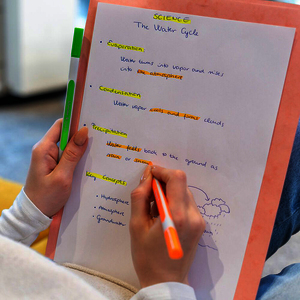 SCIENCE
The Water Cycle
• Evaporation
Water turns into vapor and rises
into the atmosphere
• Condensation
Water vapor cools and forms clouds
• Precipitation
Water falls back to the ground as
rain or snow
Key Concepts
• Hydrosphere
• Atmosphere
• Groundwater